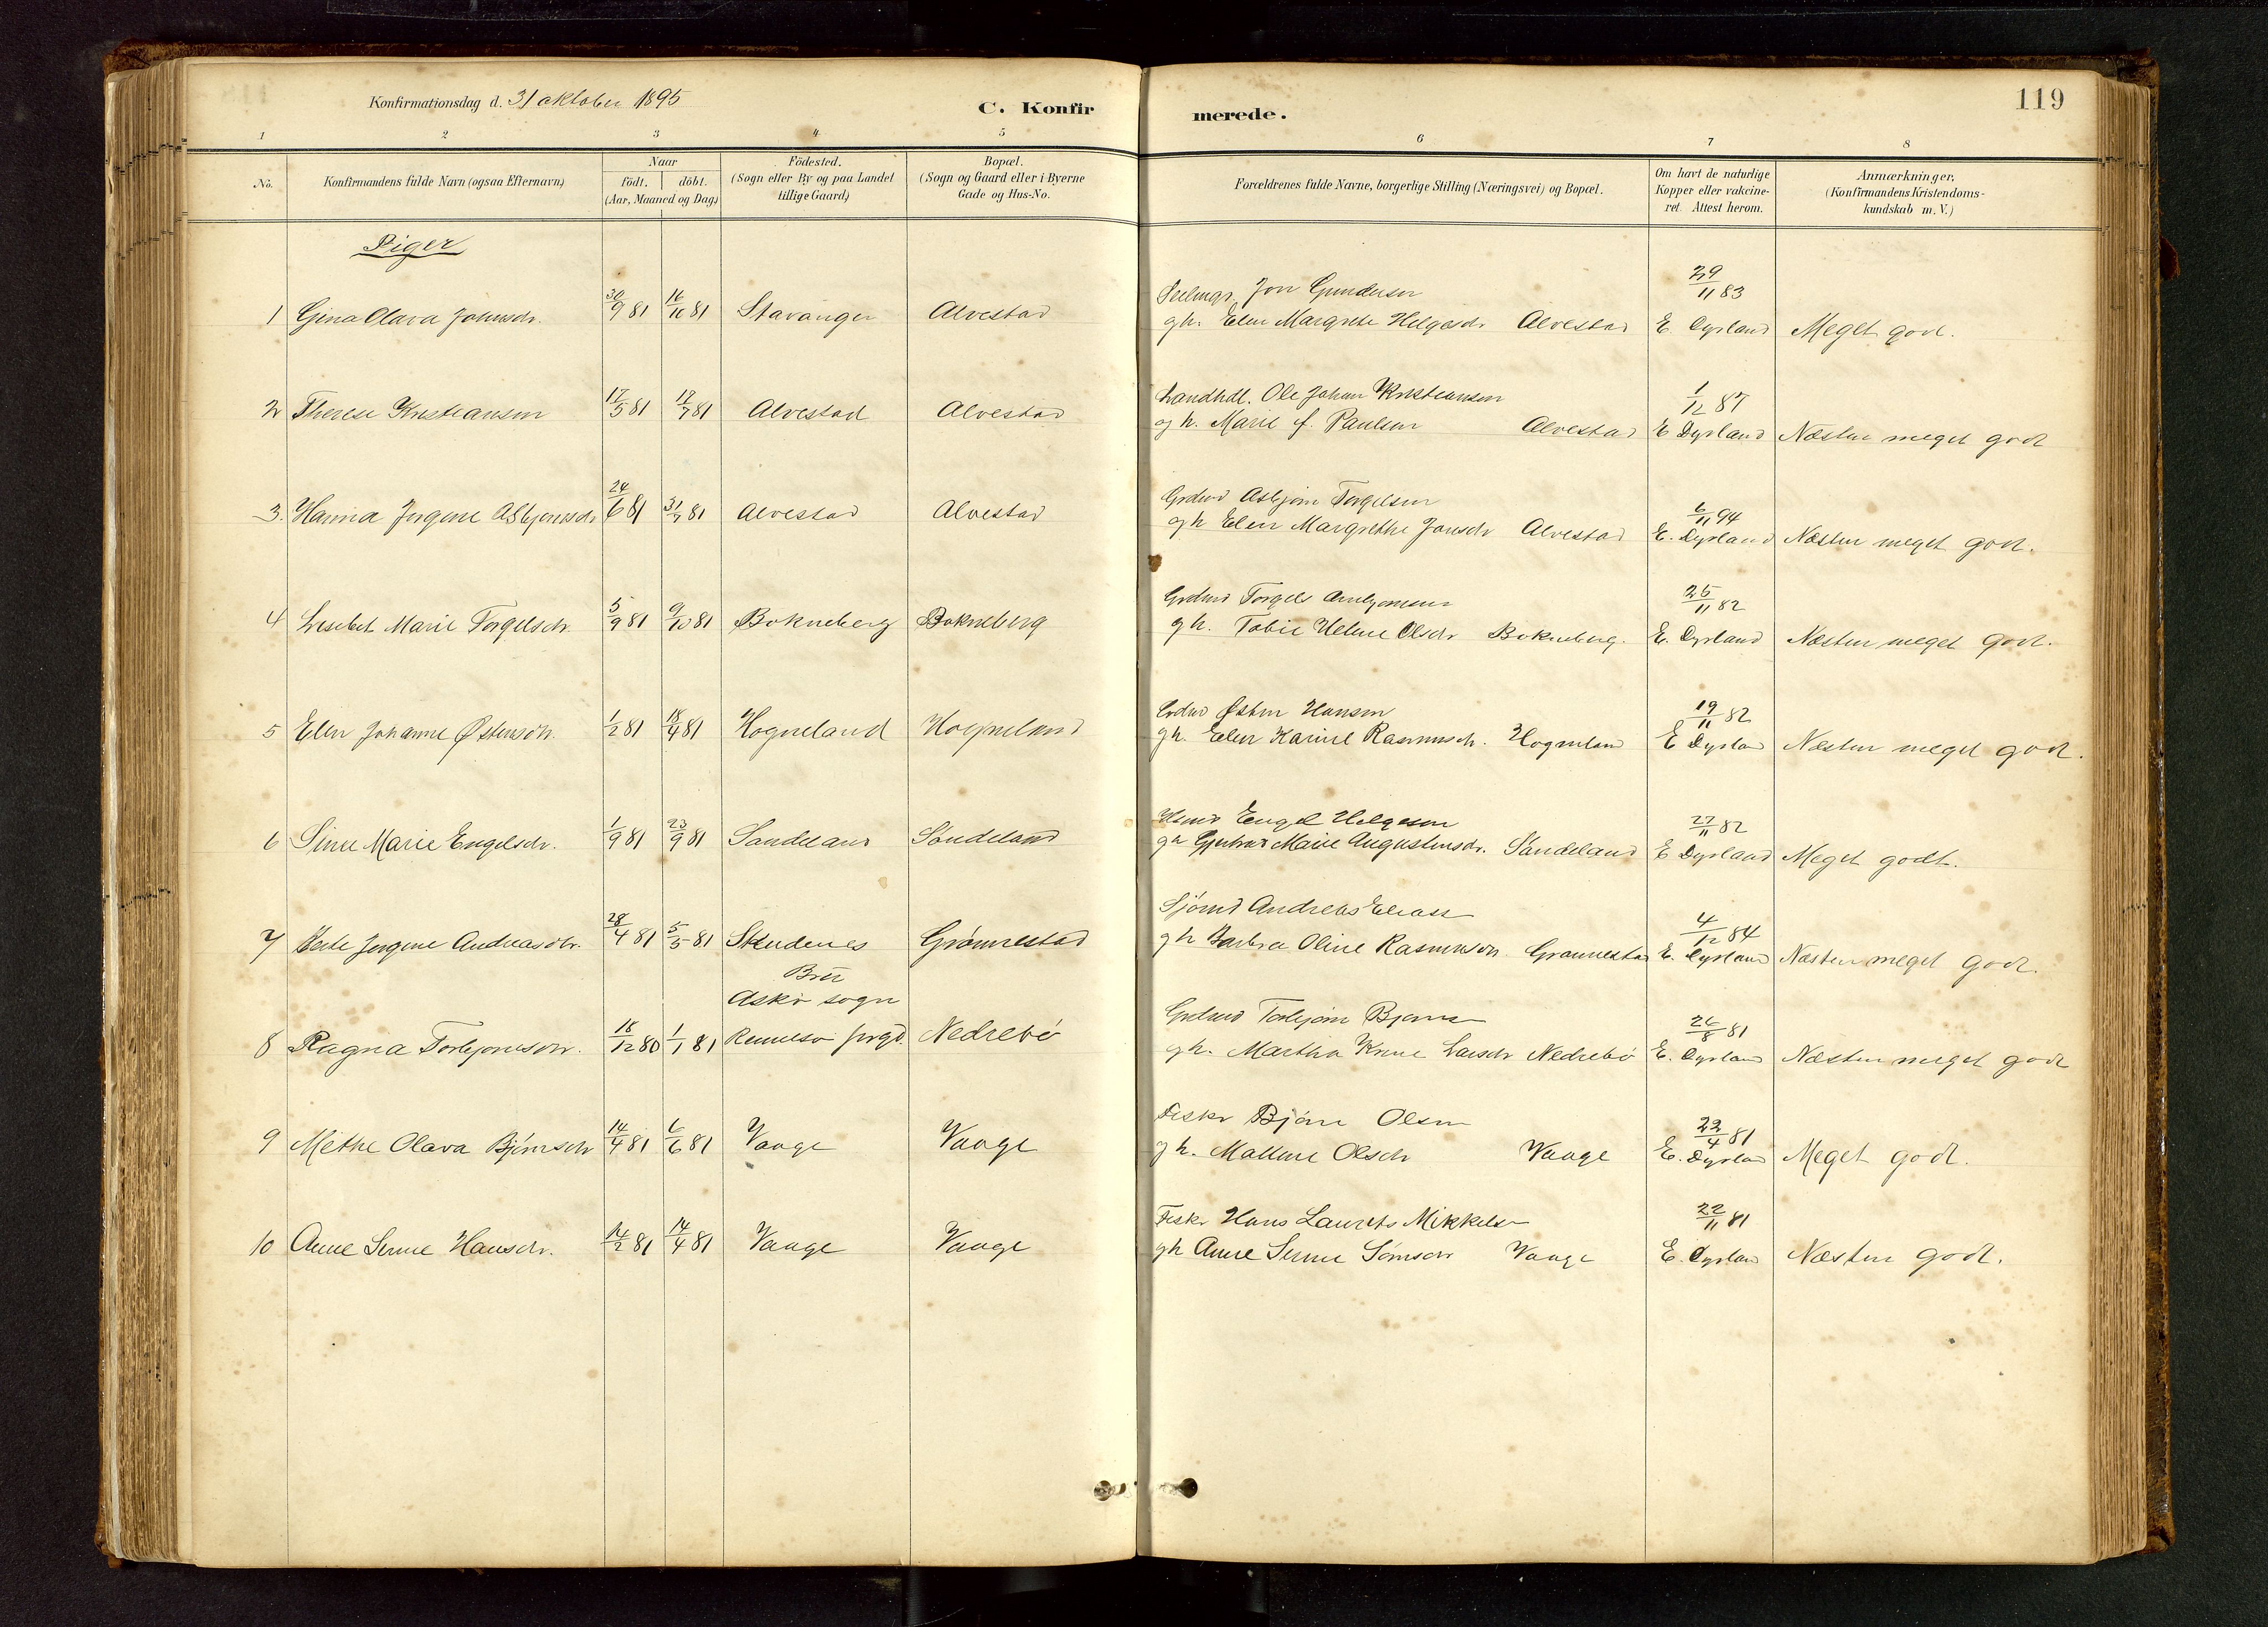 Konfirmationsdag d. 31 oktober 1895
C. Konfirmerede.
119
1 2 3 4 5 6 7 8
No.
Konfirmandens fulde Navn (ogsaa Efternavn)
Naar
födt. döbt.
(Aar, Maaned og Dag)
Födested.
(Sogn eller By og paa Landet
tillige Gaard)
Bopæl.
(Sogn og Gaard eller i Byerne
Gade og Hus-No.
Forældrenes fulde Navne, borgerlige Stilling (Næringsvei) og Bopæl.
Om havt de naturlige
Kopper eller vakcine-
ret. Attest herom.
Anmærkninger.
(Konfirmandens Kristendoms-
kundskab m. V.)
Piger
Jon Gundersen 29/11 83
1 Gina Olava Johnsdr. 30/9 81 16/10 81 Stavanger Alvestad
gh. Elen Margrete Helgesdr Alvestad E. Dyrland Meget godt.
Landhdl. Ole Johan Kristiansen 1/12 87
2 Therese Kristiansen 17/5 81 17/7 81 Alvestad Alvestad
og h. Marie f. Paulsen Alvestad E Dyrland Næsten meget godt
Grdmd Asbjørn Torgelsen 6/11 94
3. Hanna Jorgine Asbjørnsdr 24/6 81 31/7 81 Alvestad Alvestad
gh Elen Margrethe Jonsdr Alvestad E. Dyrland Næsten meget godt.
Grdmd Torgels 25/11 82
4 Lisebet Marie Torgelsdr. 5/9 81 9/10 81 Bokneberg Bokneberg
gh. Tobie Helene Olsdr Bokneberg. E. Dyrland Næsten meget godt.
Grdmd Østen Hansen 19/11 82
5 Elen Johanne Østensdr. 1/2 81 18/4 81 Hogneland Hogneland
gh. Elen Karine Rasmusdr. Hogneland E Dyrland Næsten meget godt.
Husmd Engel Helgesen 27/11 82
6 Sine Marie Engelsdr. 1/9 81 23/9 81 Sandeland Søndeland
gh Gjertrud Marie Augustinsdr. Sandeland E Dyrland Meget godt.
Sjømd Andreas Eliass 4/12 84
7 Berte Jorgine Andreasdtr. 28/4 81 5/5 81 Skudenes Grønnestad
gh Barbra Oline Rasmusdr. Grønnestad E. Dyrland Næsten meget godt.
Askø sogn
Grdmd Torbjørn Bjørns 26/8 81
8 Ragna Torbjørnsdr. 18/12 80 1/1 81 Rennesø prgd. Nedrebø
gh. Martha Larsdr Nedrebø E. Dyrland Næsten meget godt
Fisker Bjørn Olsen 22/4 81
9 Methe Olava Bjørnsdr 14/4 81 6/6 81 Vaage Vaage
gh. Mallene Olsdr Vaage E. Dyrland Meget godt.
Fisker Hans Laurits Mikkelsen 22/11 81
10 Anne Serine Hansdr. 14/2 81 14/4 81 Vaage Vaage
gh Anne Serine Vaage E. Dyrland Næsten godt.